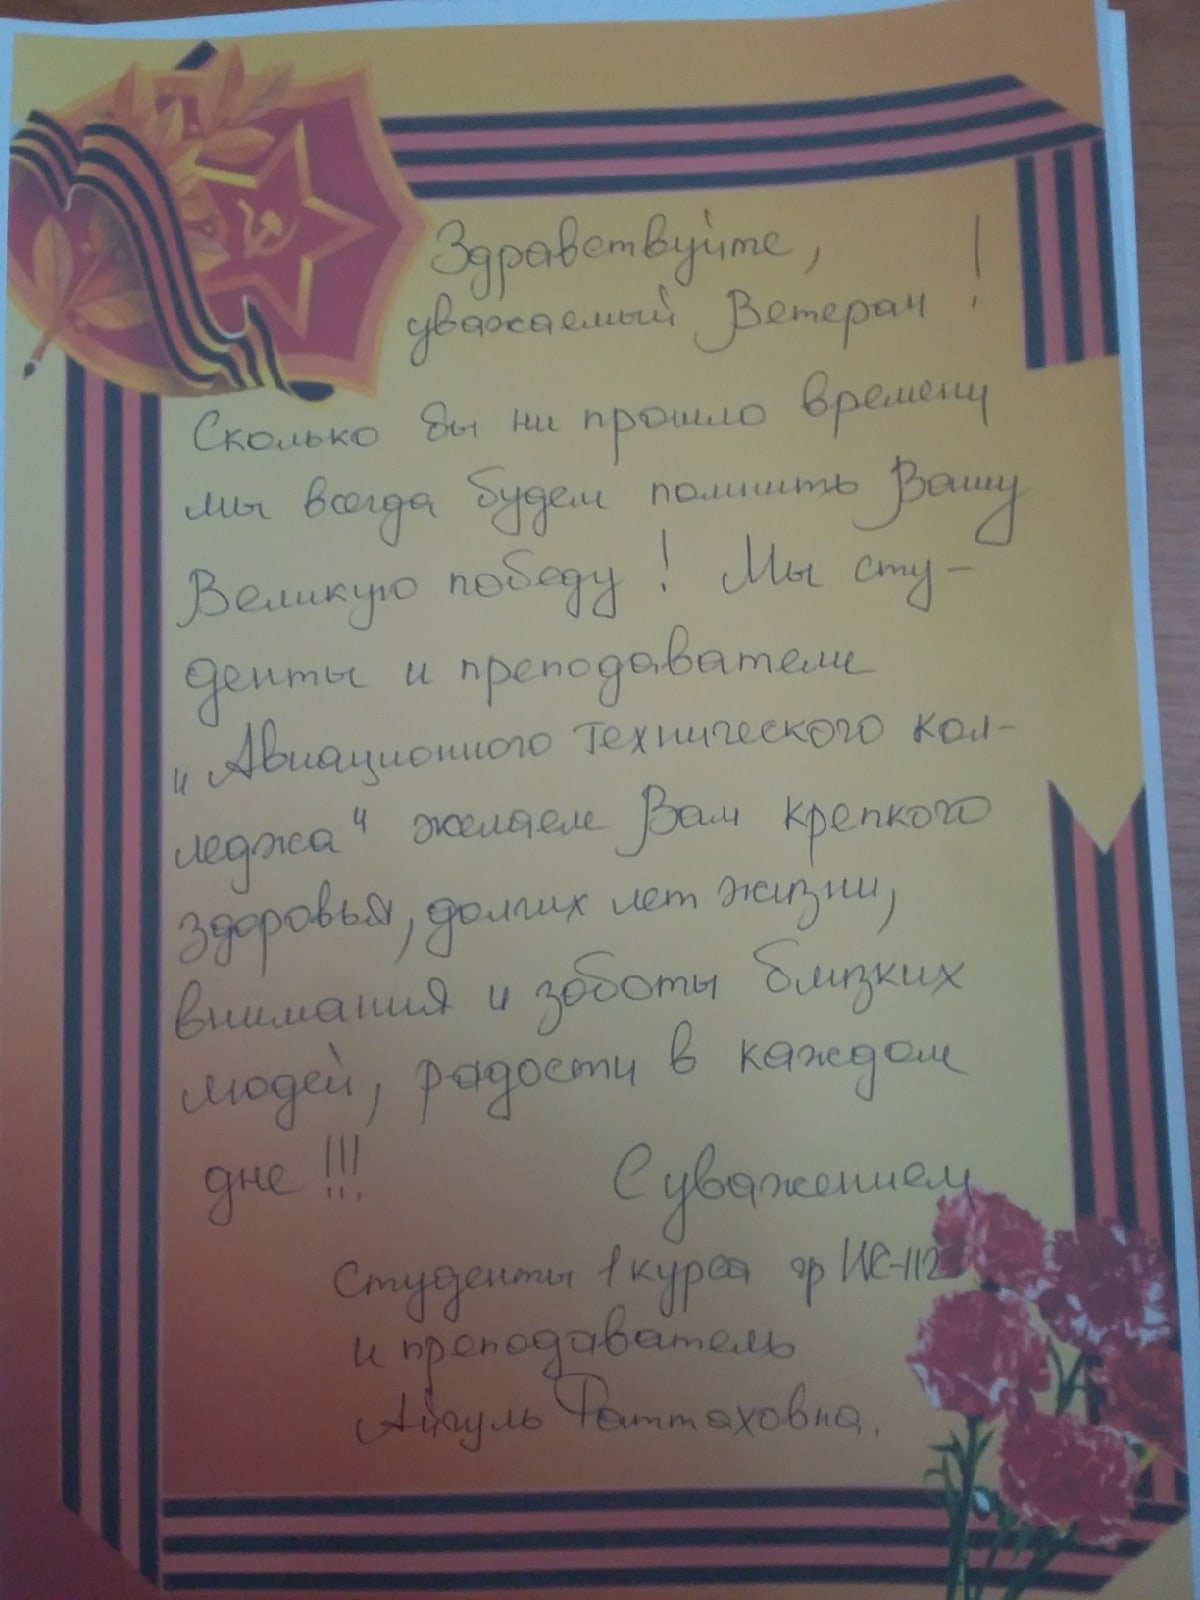 Здравствуйте,
уважаемый Ветеран !
Сколько бы ни прошло времени
мы всегда будем помнить Вашу
Великую победу ! Мы сту-
денты и преподаватели
"Авиационного технического кол-
леджа" желаем Вам крепкого
здоровья, долгих лет жизни,
внимания и зоботы близких
людей, радости в каждом
дне !!!
С уважением
студенты 1 курса гр ИС-112
и преподаватель
Айгуль Фаттаховна.